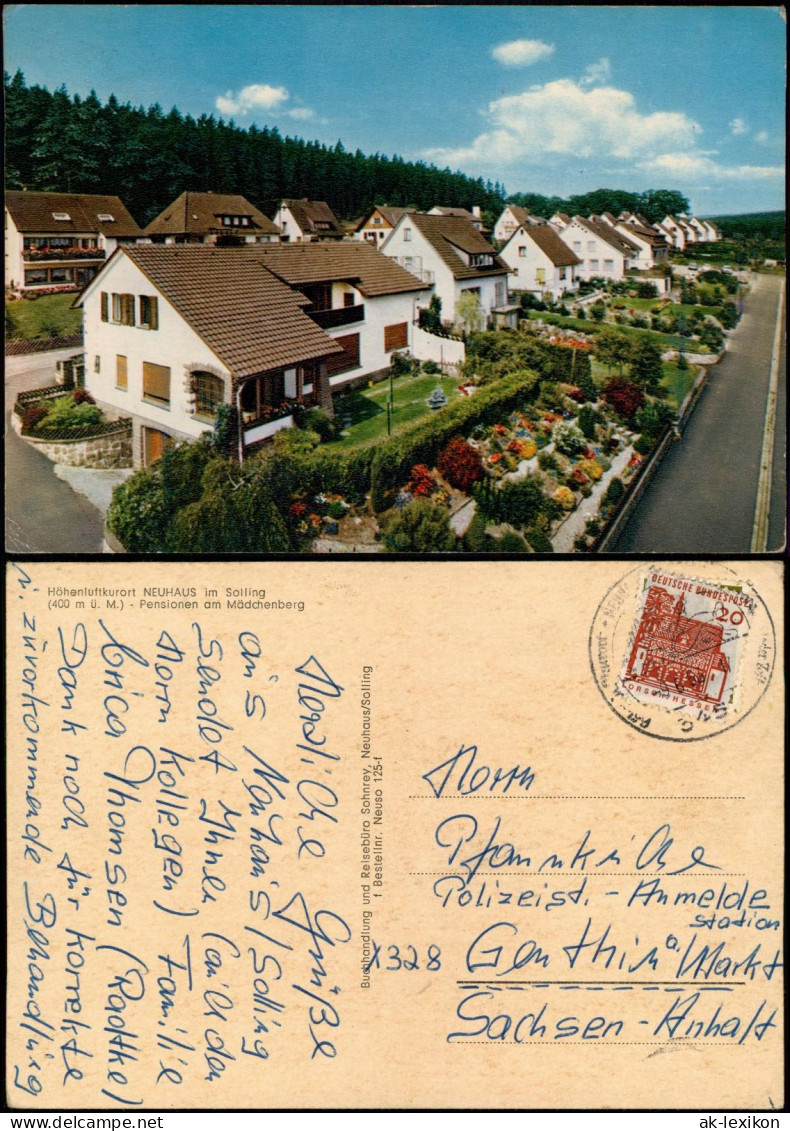 Höhenluftkurort NEUHAUS im Solling
(400 m ü. M.) - Pensionen am Mädchenberg
Herzliche Grüße
aus Neuhaus/Solling
sendet Ihnen (auch den
Herrn Kollegen) Familie
Erica Thomsen (Radtke)
Dank noch für korrekte
u. zuvorkommende Behandlung
Buchhandlung und Reisebüro Sohnrey, Neuhaus/Solling
f Bestellnr. Neuso 125-f
DEUTSCHE BUNDESPOST
20
LORSCH/HESSEN
Herrn
Pfannkuche
Polizeist. - Anmelde
station
X328
Genthin a/Markt
Sachsen-Anhalt
© ak-ansichtskarten.de
ak-lexikon